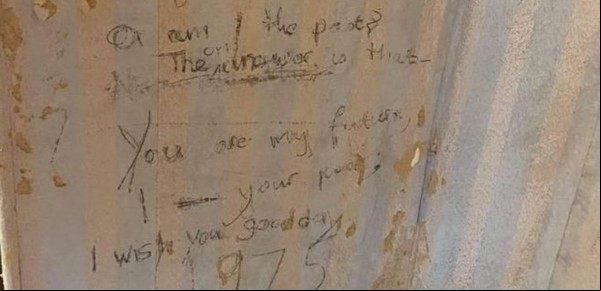 Or am I the past?
The only answer is that
You are my future,
I your past;
I wish you good day
1975